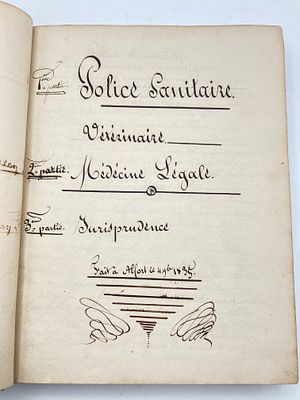 1ère partie Police Sanitaire.
Vétérinaire.
2me partie. Médécine Légale.
3me partie. Jurisprudence
Fait à Alfort ce 9bre